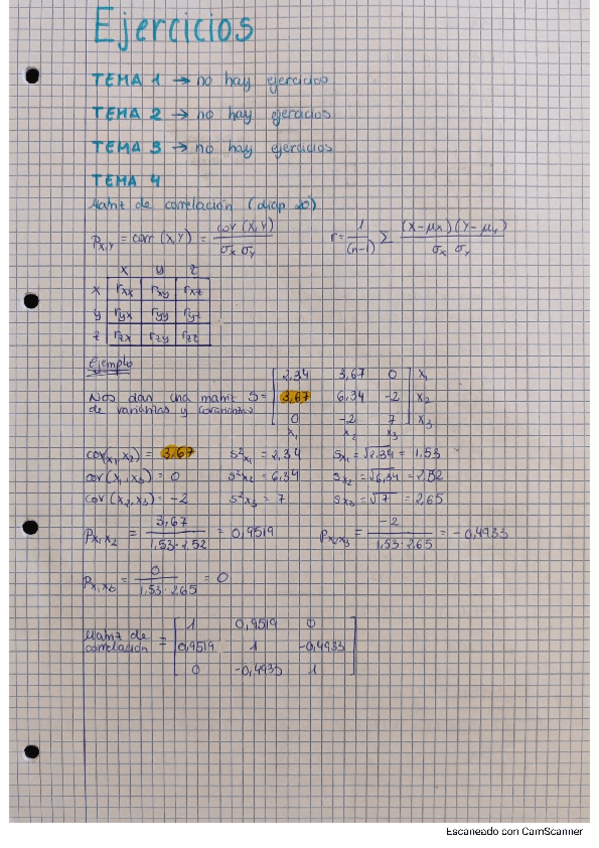 Ejercicios
TEMA 1 → no hay ejercicios
TEMA 2 → no hay ejercicios
TEMA 3 → no hay ejercicios
TEMA 4
Matriz de correlación (diap 20)
ρx,y = corr (X,Y) = cov (X,Y) / σx σy   r = 1/(n-1) Σ (X-μx)(Y-μy) / σx σy
x y z
x rxx rxy rxz
y ryx ryy ryz
z rzx rzy rzz
Ejemplo
2,34 3,67 0 x1
Nos dan una matriz S= 3,67 6,34 -2 x2
de variables y covarianzas 0 -2 7 x3
x1 x2 x3
cov(x1, x2) = 3,67   s²x1 = 2,34   sx1 = √2,34 = 1,53
cov(x1, x3) = 0   s²x2 = 6,34   sx2 = √6,34 = 2,52
cov(x2, x3) = -2   s²x3 = 7   sx3 = √7 = 2,65
ρx1x2 = 3,67 / 1,53·2,52 = 0,9519   ρx2x3 = -2 / 1,53·2,65 = -0,4933
ρx1x3 = 0 / 1,53·2,65 = 0
1 0,9519 0
Matriz de correlación = 0,9519 1 -0,4933
0 -0,4933 1
Escaneado con CamScanner